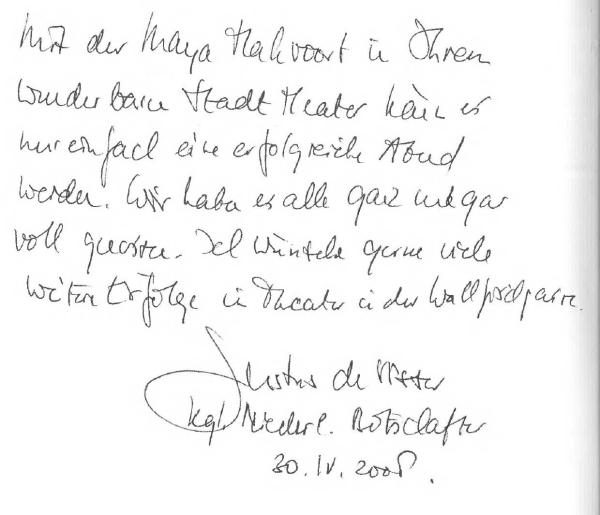 Mit der Maya Hakvoort in Ihrem
wunderbaren Stadt Theater kann es
nur einfach eine erfolgreiche Abend
werden. Wir haben es alle ganz und gar
voll genossen. Ich wünsche gerne viele
weitere Erfolge in Theater in der Walfischgasse.
Justus de Visser
kgl. Niederl. Botschafter
30. IV. 2008.